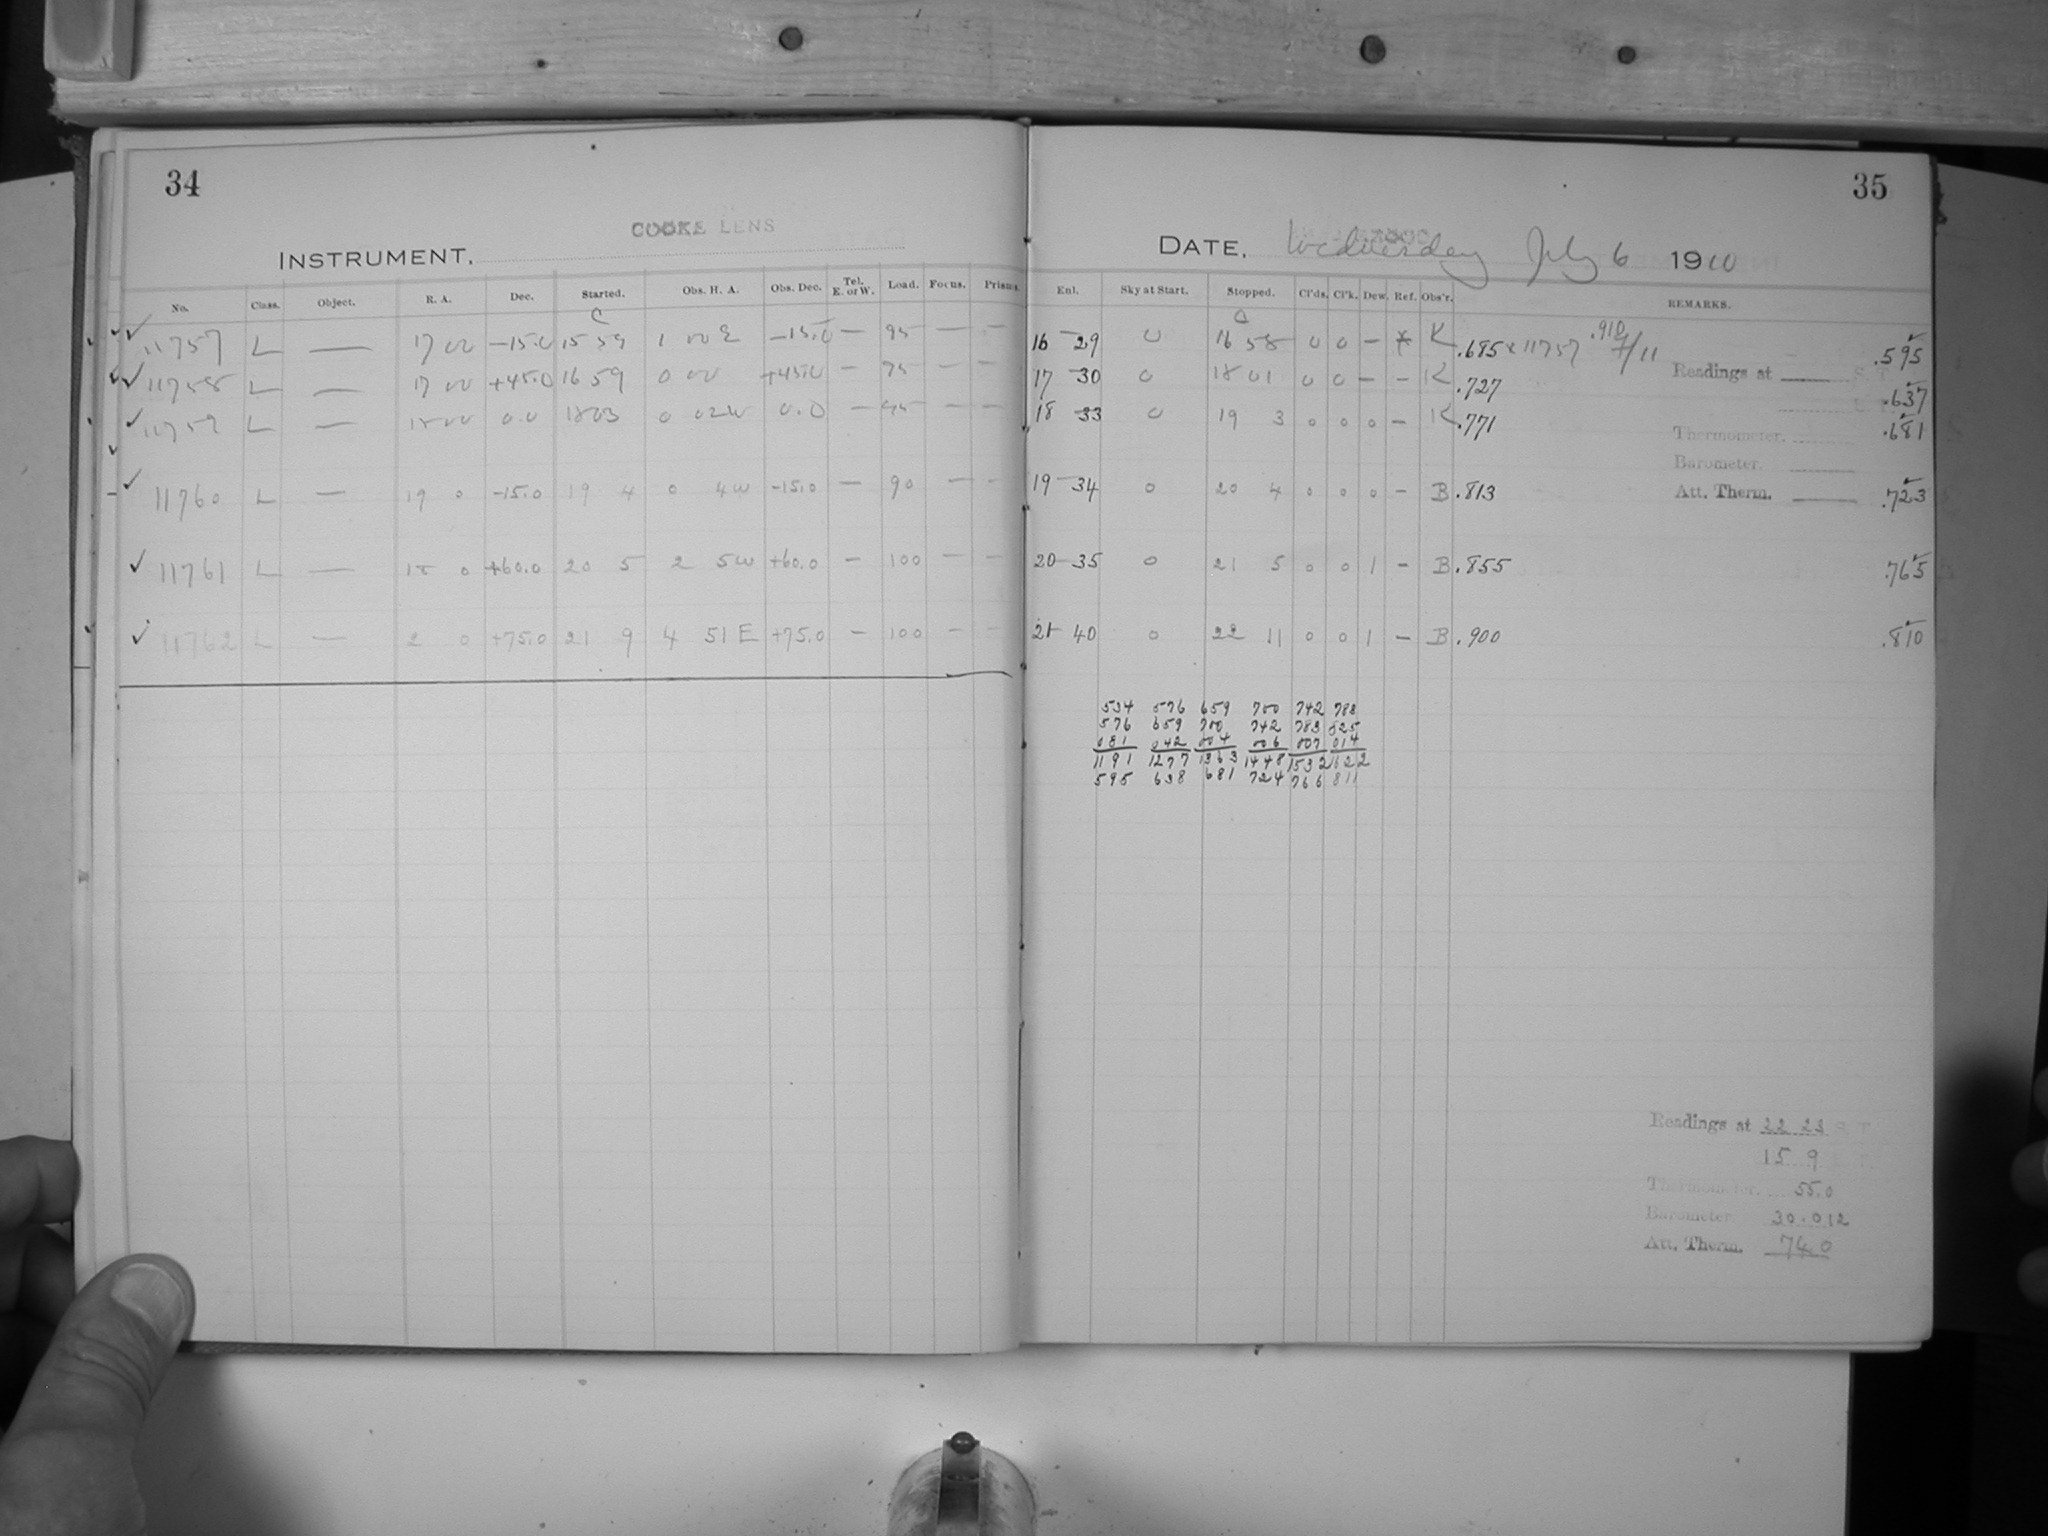 34
COOKE LENS
INSTRUMENT.
No. Class. Object. R. A. Dec. Started. Obs. H. A. Obs. Dec. Tel. E. or W. Load. Focus. Prisms.
✓ 11757 L — 17 00 −15.0 15 59 1 00 E −15.0 — 95 — —
✓ 11758 L — 17 00 +45.0 16 59 0 00 +45.0 — 75 — —
✓ 11759 L — 18 00 0.0 18 03 0 02W 0.0 — 45 — —
✓ 11760 L — 19 0 −15.0 19 4 0 4W −15.0 — 90 — —
✓ 11761 L — 18 0 +60.0 20 5 2 5W +60.0 — 100 — —
✓ 11762 L — 2 0 +75.0 21 9 4 51E +75.0 — 100 — —
35
DATE. Wednesday July 6 1910
Enl. Sky at Start. Stopped. Cl'ds. Cl'k. Dew. Ref. Obs'r. REMARKS.
16 29 0 16 58 0 0 — * K .685 * 11757 .910 7/11 .595
Readings at S. T.
17 30 0 18 01 0 0 — — K .727 .637
18 33 0 19 3 0 0 0 — K .771 .681
Thermometer.
Barometer.
19 34 0 20 4 0 0 0 — B .813 Att. Therm. .723
20 35 0 21 5 0 0 1 — B .855 .765
21 40 0 22 11 0 0 1 — B .900 .810
534 576 659 700 742 783
576 659 700 742 783 825
081 042 004 006 007 014
1191 1277 1363 1448 1532 1622
595 638 681 724 766 811
Readings at 22 23 S. T.
15 9
Thermometer. 55.0
Barometer. 30.012
Att. Therm. 74.0